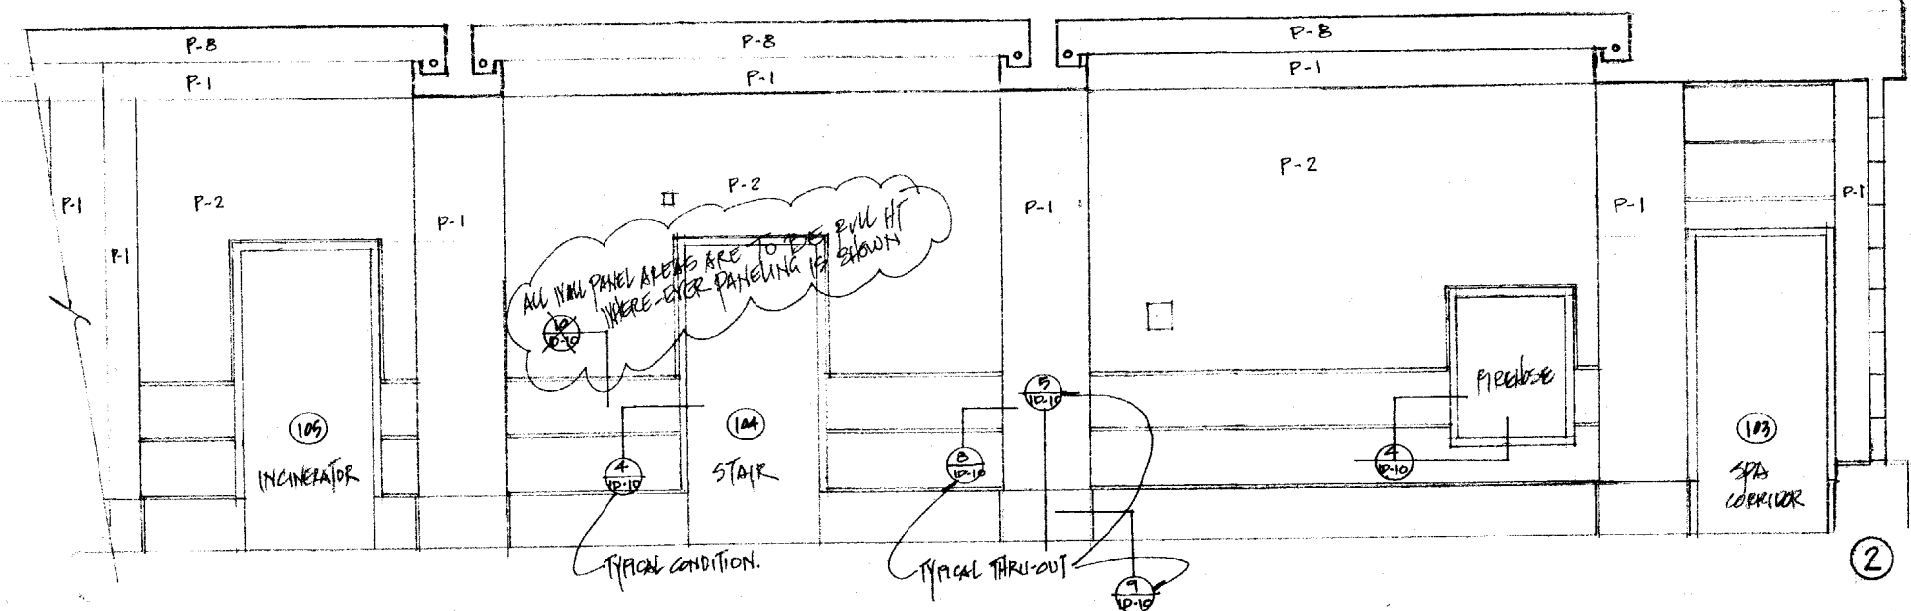 P-8
P-8
P-8
P-1
P-1
P-1
P-2
P-2
P-2
P-1
P-1
P-1
P-1
P-1
P-1
ALL WALL PANEL AREAS ARE TO BE FULL HT
WHERE-EVER PANELING IS SHOWN
10
ID-10
FIREHOSE
5
ID-10
105
INCINERATOR
104
STAIR
4
ID-10
8
ID-10
4
ID-10
103
SPA
CORRIDOR
TYPICAL CONDITION.
TYPICAL THRU-OUT
9
ID-10
2